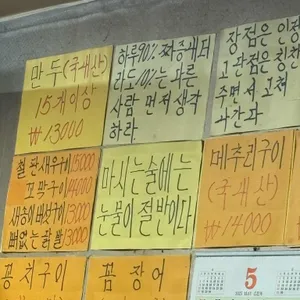 만두(국내산)
15개이상
₩13000
하루90% 짜증내더
라도 10%는 다른
사람 먼저 생각
하라.
장점은 인정
고 단점은 칭찬
주면서 고쳐
나간다
철판새우구이 15000
꼬막구이 14000
새송이버섯구이 13000
뼈없는 닭발 13000
마시는 술에는
눈물이 절반이다
메추리구이
(국내산)
₩14000
꽁치구이
꼼장어
5